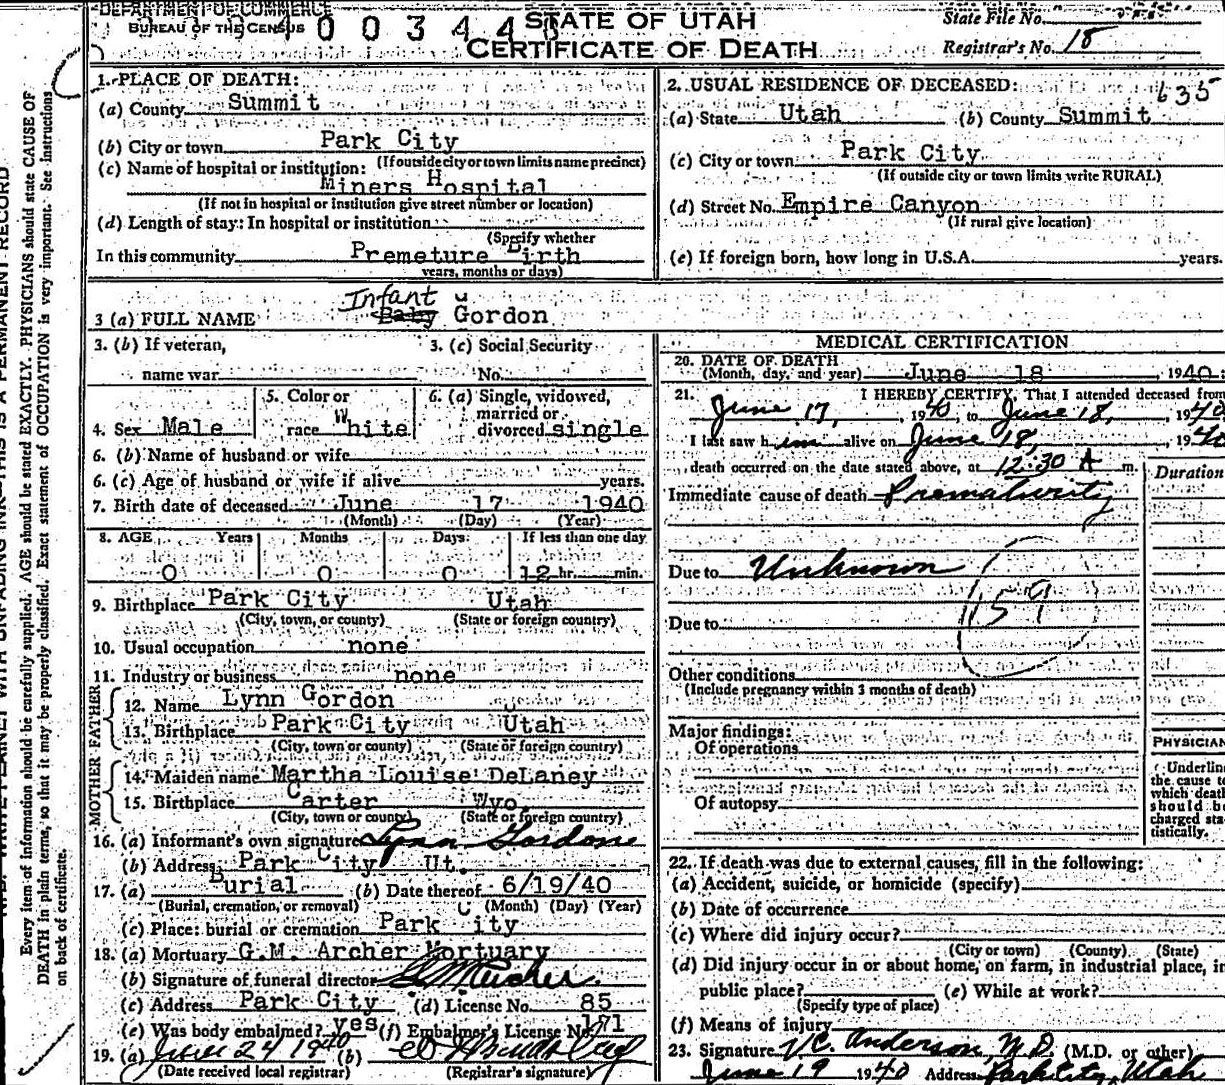 DEPARTMENT OF COMMERCE
BUREAU OF THE CENSUS
STATE OF UTAH
CERTIFICATE OF DEATH
State File No.
Registrar's No. 18
635
1. PLACE OF DEATH:
(a) County Summit
(b) City or town Park City
(If outside city or town limits name precinct)
(c) Name of hospital or institution:
Miners Hospital
(If not in hospital or institution give street number or location)
(d) Length of stay: In hospital or institution
(Specify whether
In this community Premeture Birth
years, months or days)
2. USUAL RESIDENCE OF DECEASED:
(a) State Utah (b) County Summit
(c) City or town Park City
(If outside city or town limits write RURAL)
(d) Street No. Empire Canyon
(If rural give location)
(e) If foreign born, how long in U.S.A. years.
Infant
3 (a) FULL NAME Baby Gordon
3. (b) If veteran, name war
3. (c) Social Security No.
4. Sex Male
5. Color or race White
6. (a) Single, widowed, married or divorced single
6. (b) Name of husband or wife
6. (c) Age of husband or wife if alive years.
7. Birth date of deceased June 17 1940
(Month) (Day) (Year)
8. AGE Years Months Days If less than one day
0 0 0 12 hr. min.
9. Birthplace Park City Utah
(City, town, or county) (State or foreign country)
10. Usual occupation none
11. Industry or business none
FATHER
12. Name Lynn Gordon
13. Birthplace Park City Utah
(City, town or county) (State or foreign country)
MOTHER
14. Maiden name Martha Louise DeLaney
15. Birthplace Carter Wyo.
(City, town or county) (State or foreign country)
16. (a) Informant's own signature Lynn Gordon
(b) Address Park City Ut.
17. (a) Burial (b) Date thereof 6/19/40
(Burial, cremation, or removal) (Month) (Day) (Year)
(c) Place: burial or cremation Park City
18. (a) Mortuary G.M. Archer Mortuary
(b) Signature of funeral director G M Archer
(c) Address Park City (d) License No. 85
(e) Was body embalmed? yes (f) Embalmer's License No. 171
19. (a) June 24 1940 (b)
(Date received local registrar) (Registrar's signature)
MEDICAL CERTIFICATION
20. DATE OF DEATH
(Month, day, and year) June 18, 1940
21. I HEREBY CERTIFY, That I attended deceased from
June 17, 1940, to June 18, 1940
I last saw him alive on June 18, 1940
death occurred on the date stated above, at 12:30 A m.
Duration
Immediate cause of death Prematurity
Due to Unknown
159
Due to
Other conditions
(Include pregnancy within 3 months of death)
Major findings:
Of operations
Of autopsy
PHYSICIAN
Underline
the cause to
which death
should be
charged sta-
tistically.
22. If death was due to external causes, fill in the following:
(a) Accident, suicide, or homicide (specify)
(b) Date of occurrence
(c) Where did injury occur?
(City or town) (County) (State)
(d) Did injury occur in or about home, on farm, in industrial place, in
public place? (e) While at work?
(Specify type of place)
(f) Means of injury
23. Signature V.C. Anderson, M.D. (M.D. or other)
June 19 1940 Address Park City, Utah
Every item of information should be carefully supplied. AGE should be stated EXACTLY. PHYSICIANS should state CAUSE OF
DEATH in plain terms, so that it may be properly classified. Exact statement of OCCUPATION is very important. See instructions
on back of certificate.